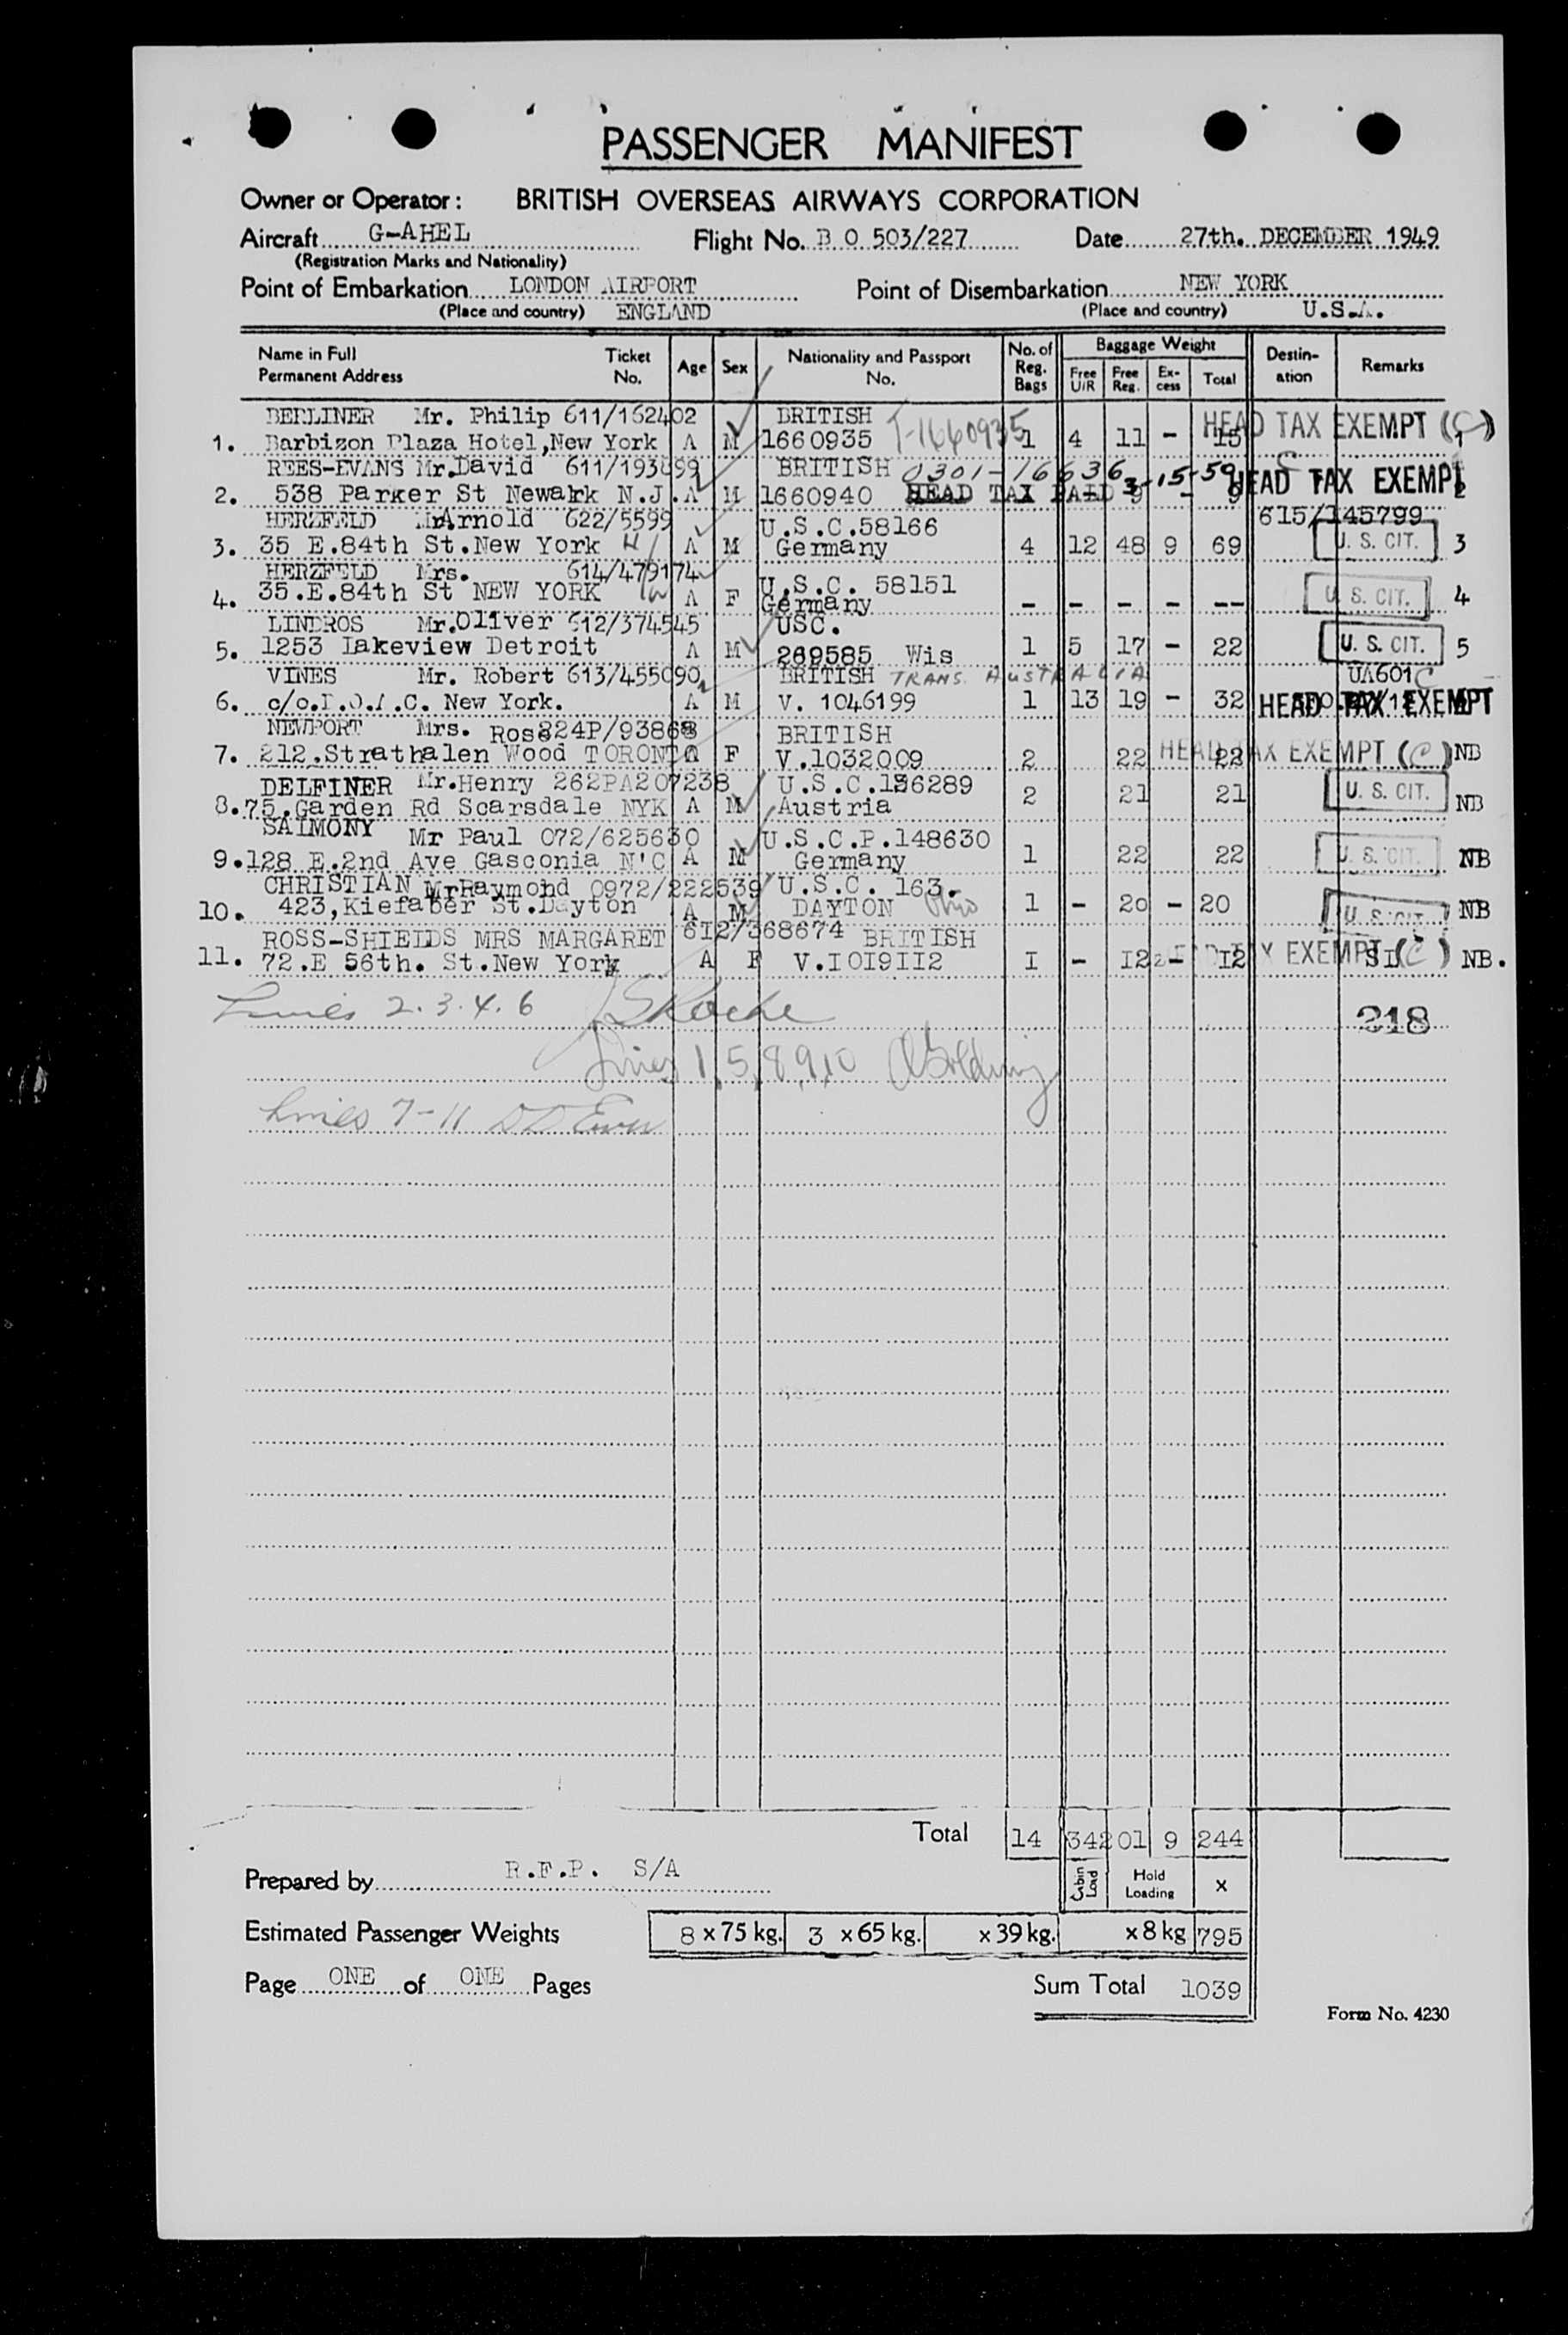 PASSENGER MANIFEST
Owner or Operator: BRITISH OVERSEAS AIRWAYS CORPORATION
Aircraft G-AHEL Flight No. B O 503/227 Date 27th. DECEMBER 1949
(Registration Marks and Nationality)
Point of Embarkation LONDON AIRPORT Point of Disembarkation NEW YORK
(Place and country) ENGLAND (Place and country) U.S.A.
Name in Full Permanent Address Ticket No. Age Sex Nationality and Passport No. No. of Reg. Bags Baggage Weight Free U/R Free Reg. Ex-cess Total Destin-ation Remarks
BERLINER Mr. Philip 611/162402 BRITISH T-1660935 HEAD TAX EXEMPT (C)
1. Barbizon Plaza Hotel,New York A M 1660935 1 4 11 - 15 1
REES-EVANS Mr.David 611/193499 BRITISH 0301-16636 3-15-59 HEAD TAX EXEMPT
2. 538 Parker St Newark N.J. A M 1660940 HEAD TAX PAID 1 - 9 - 9 2
HERZFELD Mr Arnold 622/5599 U.S.C.58166 615/145799
3. 35 E.84th St.New York A M Germany 4 12 48 9 69 U. S. CIT. 3
HERZFELD Mrs. 614/479174 U.S.C. 58151
4. 35.E.84th St NEW YORK A F Germany - - - - -- U. S. CIT. 4
LINDROS Mr.Oliver 612/374545 USC.
5. 1253 Lakeview Detroit A M 269585 Wis 1 5 17 - 22 U. S. CIT. 5
VINES Mr. Robert 613/455090 BRITISH TRANS. AUSTRALIA UA601
6. c/o.B.O.A.C. New York. A M V. 1046199 1 13 19 - 32 HEAD TAX EXEMPT
NEWPORT Mrs. Rose 824P/93868 BRITISH
7. 212.Strathalen Wood TORONTO A F V.1032009 2 22 22 HEAD TAX EXEMPT (C) NB
DELFINER Mr.Henry 262PA207238 U.S.C.136289
8. 75.Garden Rd Scarsdale NYK A M Austria 2 21 21 U. S. CIT. NB
SALMONY Mr Paul 072/625630 U.S.C.P.148630
9. 128 E.2nd Ave Gasconia N'C A M Germany 1 22 22 U. S. CIT. NB
CHRISTIAN Mr Raymond 0972/222539 U.S.C. 163.
10. 423,Kiefaber St.Dayton A M DAYTON Ohio 1 - 20 - 20 U. S. CIT. NB
ROSS-SHIELDS MRS MARGARET 6I2/368674 BRITISH
11. 72.E 56th. St.New York A F V.I0I9II2 I - I2 - I2 EXEMPT (C) NB.
Lines 2.3.4.6
218
Lines 1,5,8,9,10
Lines 7-11
Total 14 34 201 9 244
Prepared by R.F.P. S/A Cabin Load Hold Loading x
Estimated Passenger Weights 8 x 75 kg. 3 x 65 kg. x 39 kg. x 8 kg 795
Page ONE of ONE Pages Sum Total 1039
Form No. 4230